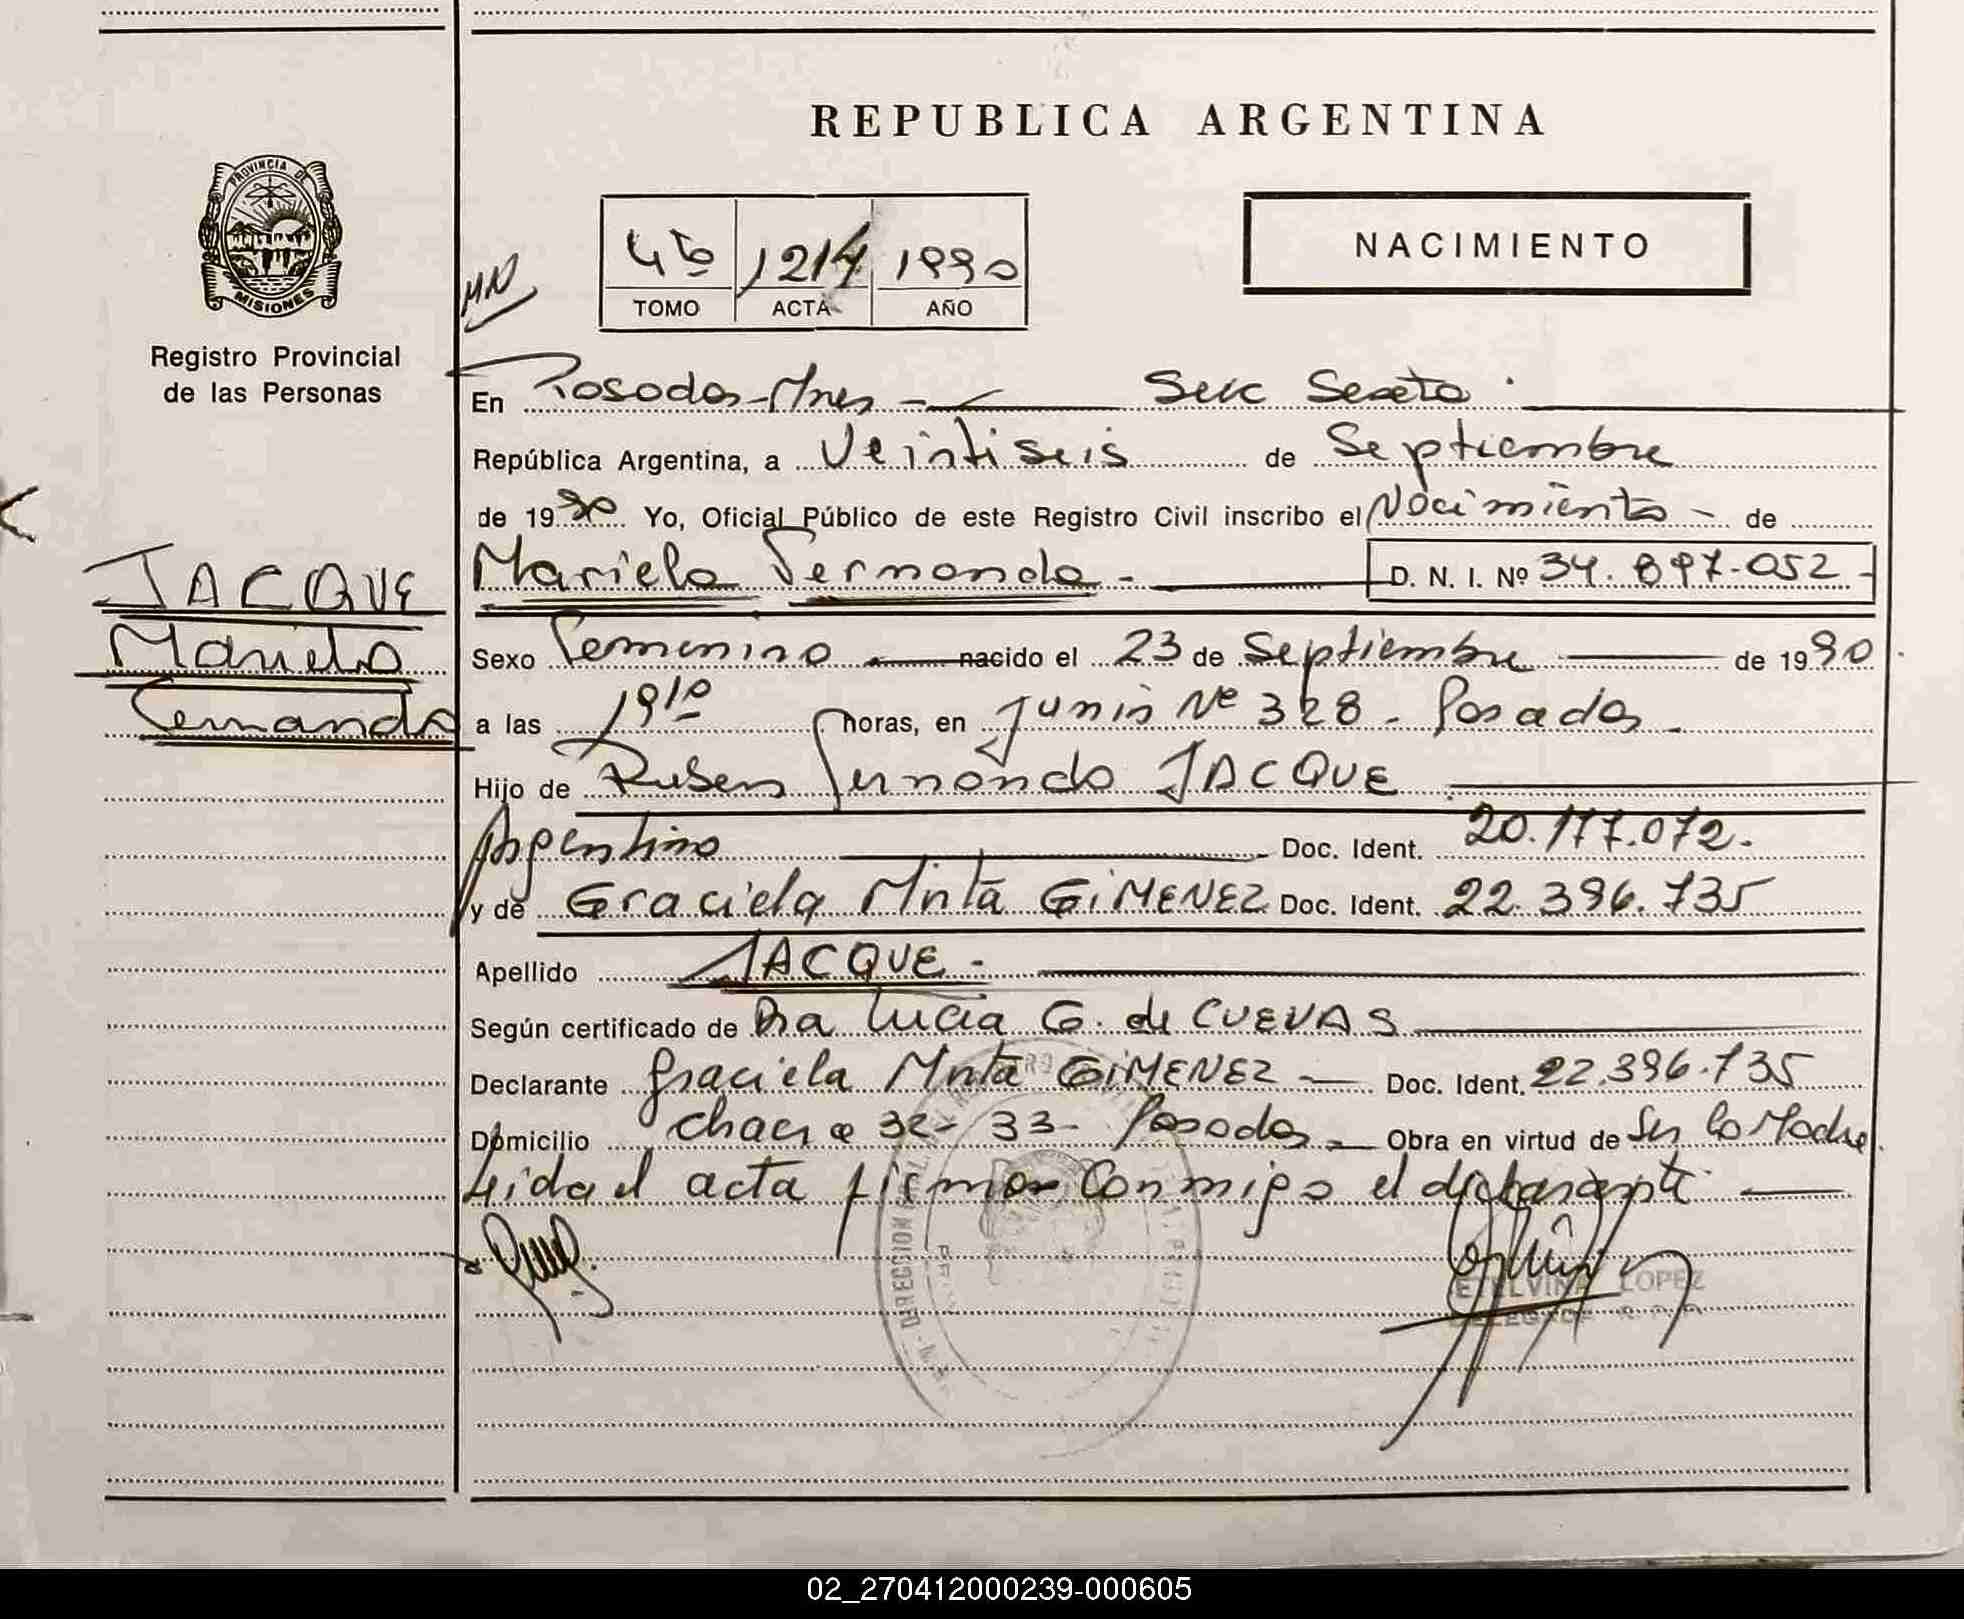 REPUBLICA ARGENTINA
PROVINCIA DE
MISIONES
Registro Provincial
de las Personas
4to 1214 1990
TOMO ACTA AÑO
NACIMIENTO
En Posadas-Mnes - Secc Sexta
República Argentina, a Veintiseis de Septiembre
de 1990 Yo, Oficial Público de este Registro Civil inscribo el Nacimiento - de
Mariela Fernanda - D. N. I. Nº 34.897.052 -
JACQUE
Mariela
Fernanda
Sexo Femenino nacido el 23 de Septiembre de 1990
a las 19 10 horas, en Junin Nº 328 - Posadas -
Hijo de Ruben Fernando JACQUE
Argentino Doc. Ident. 20.177.072.
y de Graciela Mirta GiMENEZ Doc. Ident. 22.396.735
Apellido JACQUE -
Según certificado de Dra Lucia G. de CUEVAS
Declarante Graciela Mirta GiMENEZ - Doc. Ident. 22.396.735
Domicilio chacra 32-33- Posadas - Obra en virtud de Ser la Madre
Leida el acta firma conmigo el declarante
DIRECCION
ETELVINA LOPEZ
02_270412000239-000605